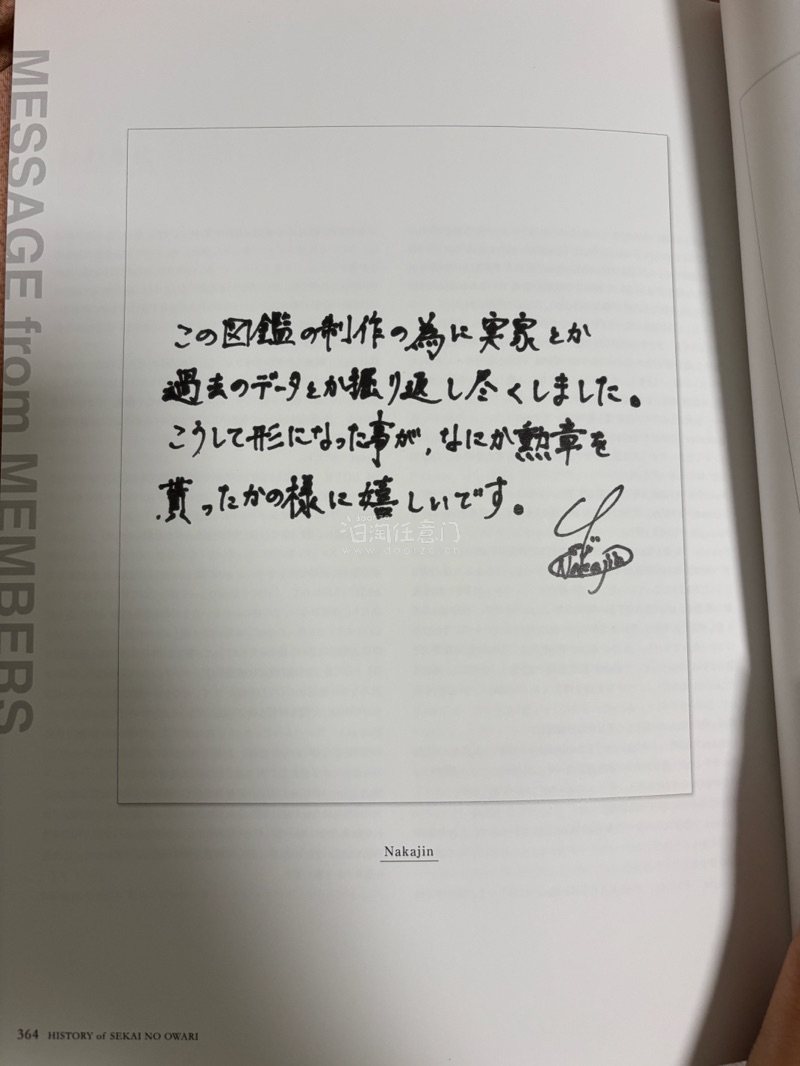 MESSAGE from MEMBERS
この図鑑の制作の為に実家とか
過去のデータとか掘り返し尽くしました。
こうして形になった事が、なにか勲章を
貰ったかの様に嬉しいです。
Nakajin
Nakajin
364 HISTORY of SEKAI NO OWARI